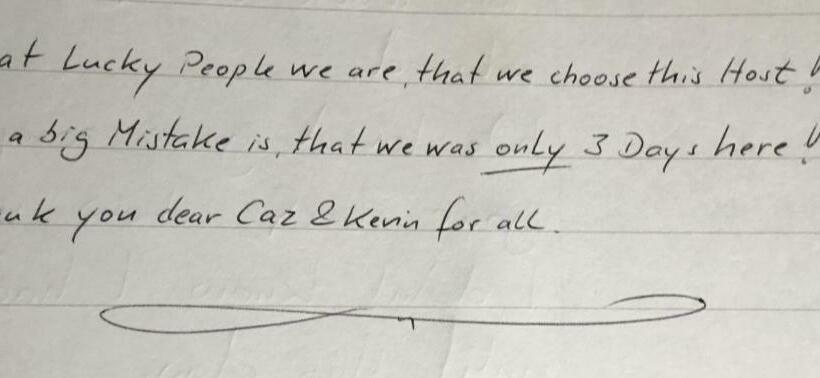 at Lucky People we are, that we choose this Host!
a big Mistake is, that we was only 3 Days here!
uk you dear Caz & Kevin for all.